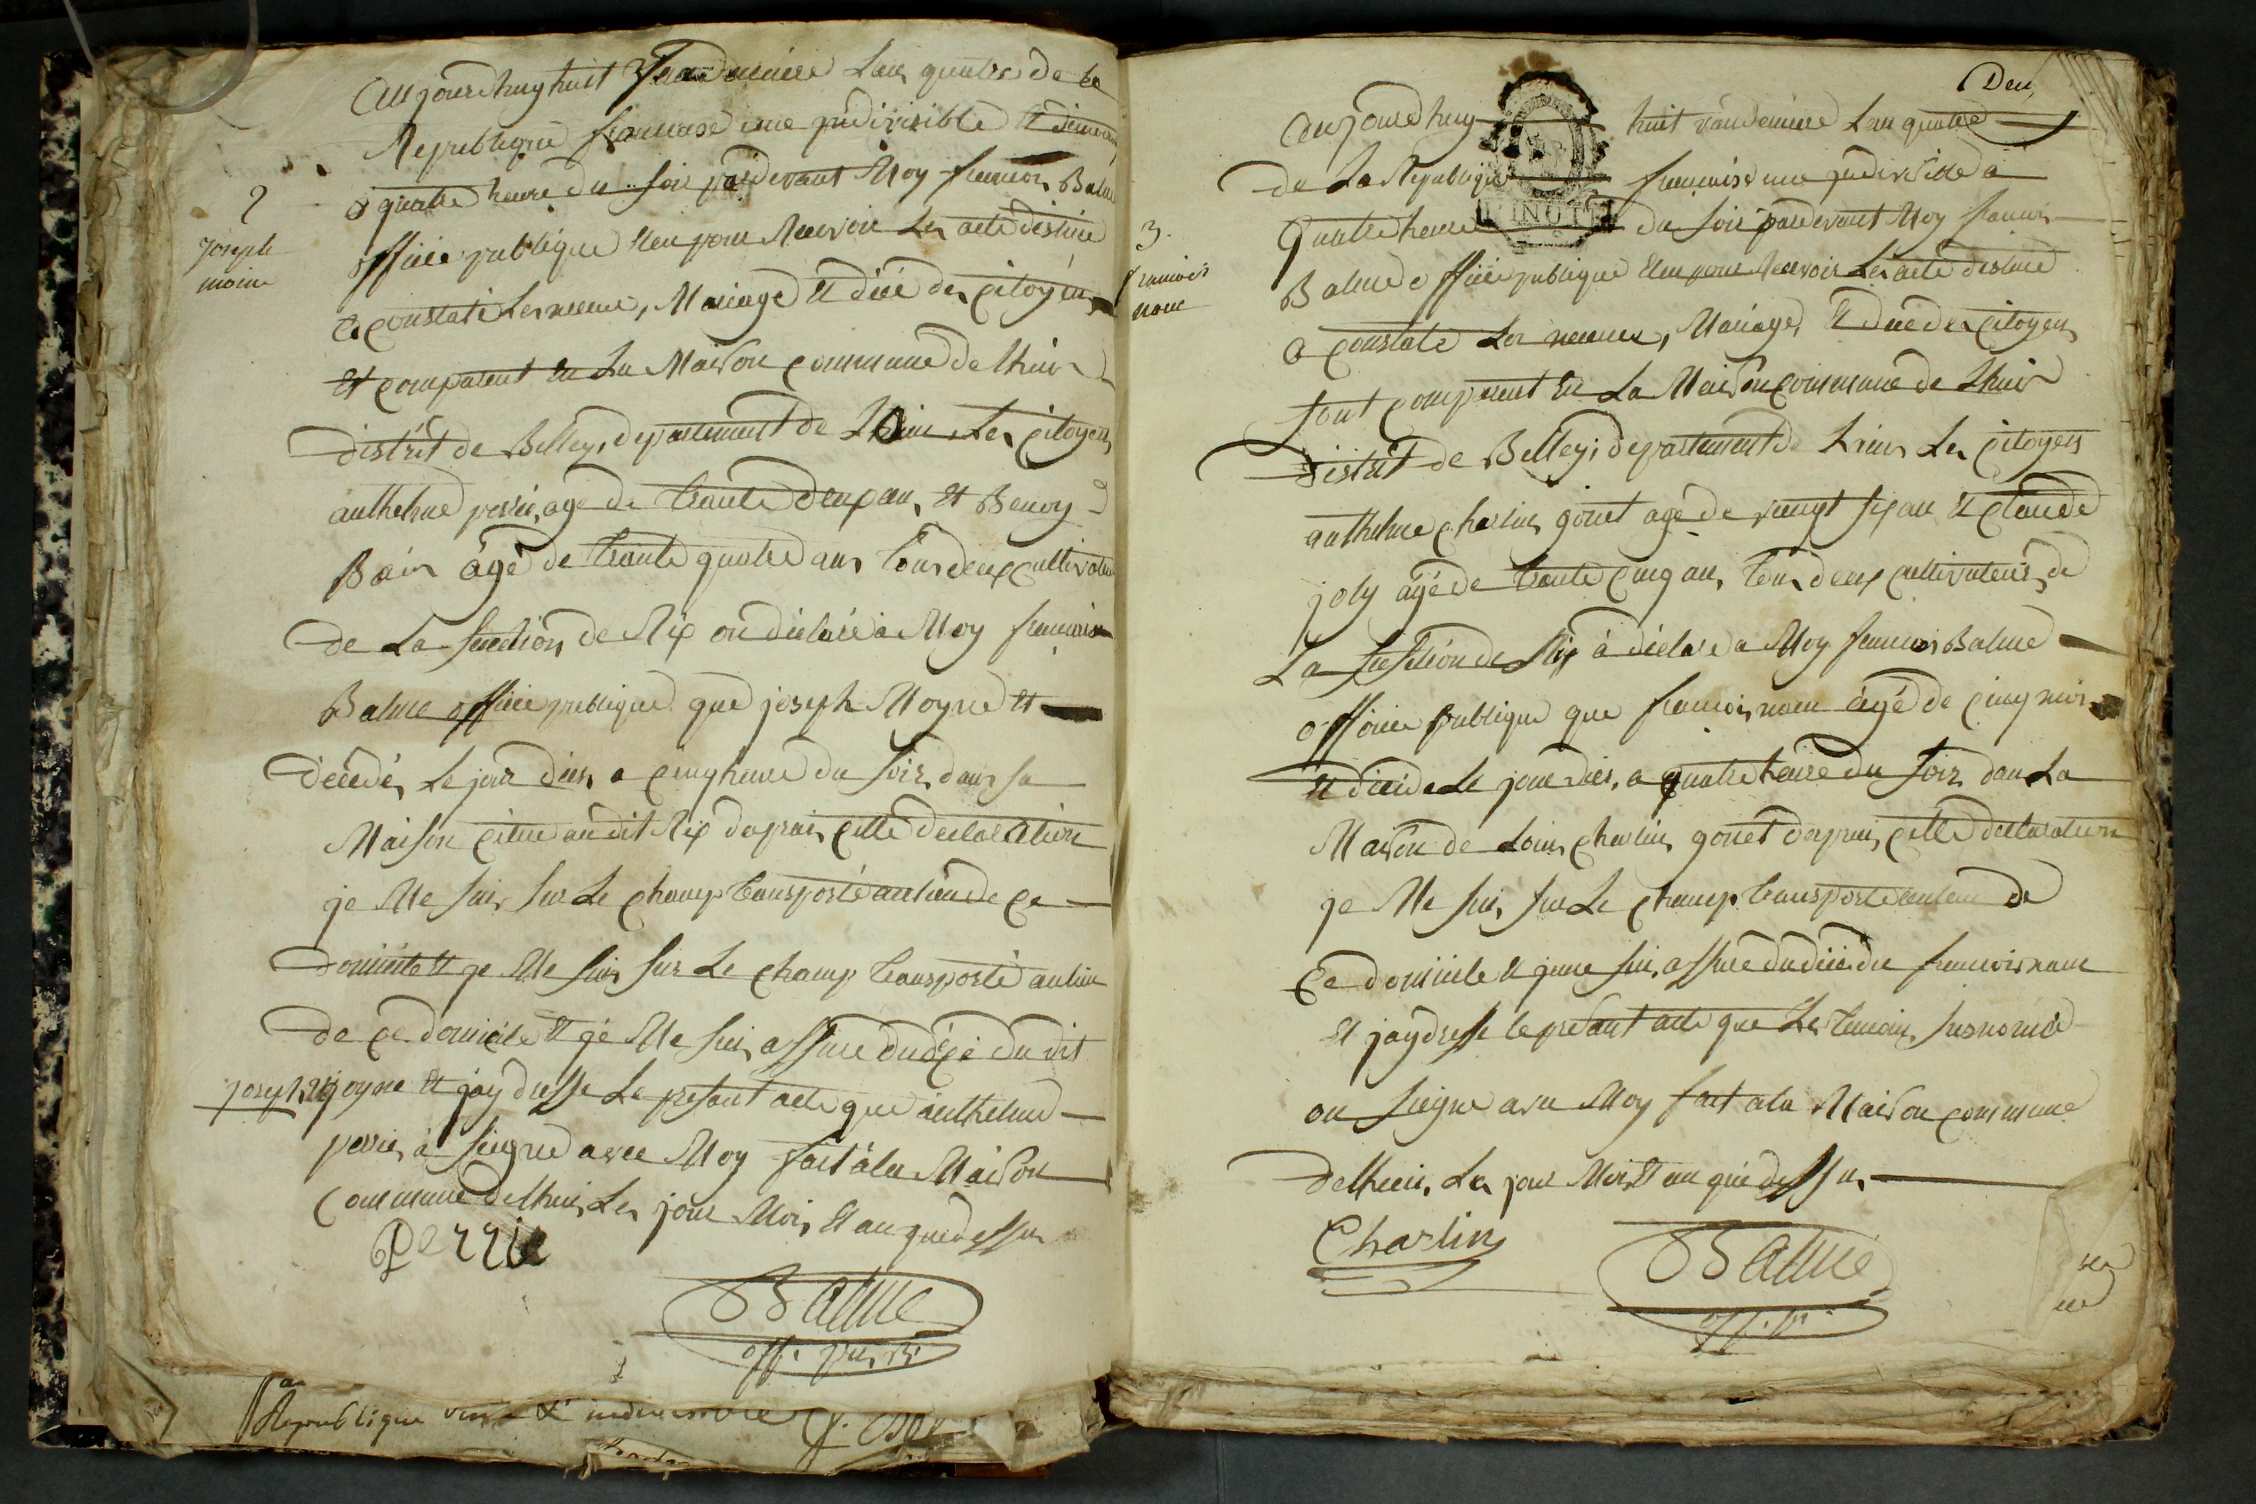 Aujourdhuy huit Vandemiere Lan quatre de la
Republique francaise une jndivisible et democra
a quatre heure du soir pardevant Moy francois Balme
officie publique Eleu pour Recevoir Les acte destine
a constate Les nessence, Mariage et décé des citoyens
Et comparent en La Maison commune de Lhuis
district de Belley, departement de Lain, Les citoyens
anthelme perrin, age de trante deux an, et Benoy
Bain âgé de trante quatre ans tous deux cultivateur
de La section de Rix on déclaré a Moy francois
Balme officie publique que joseph Moyne et
décédé, Le jour dier, a cinq heure du soir, dans sa
Maison citue audit Rix daprais cette declaration
je Me suis sur Le champ transporté au lieu de ce
domicile et je Me suis sur Le champ transporté au lieu
de ce domicile et je Me suis assure du décé du dit
joseph Moyne et jay dresse Le présent acte que anthelme
perrin à siegne avec Moy fait à la Maison
Commune de Lhuis, Les jour Mois et an que dessus
Perrin
Balme
off. pub.
2
joseph
moine
Republique une et indivisible
Deux
Aujourdhuy huit vandemiere Lan quatre
de La Republique francaise une jndivisible a
Quatre heure du soir pardevant Moy francois
Balme officie publique Eleu pour Recevoir Les acte destine
a constate Les nessence, Mariage, et décé des citoyens
sont comparent en La Maison commune de Lhuis
District de Belley, departement de Lain Les citoyens
anthelme charlin gonet agé de vingt six an et claude
joly âgé de trante cinq an, tous deux cultivateurs de
La section de Rix à déclare a Moy francois Balme
officie publique que francois âgé de cinq mois
et décéde Le jour dier, a quatre heure du soir dans La
Maison de Louis charlin gonet daprais cette declaration
je Me suis sur Le champ transporté au lieu de
Ce domicile et je me suis assure du décé du francois
et jay dresse le présant acte que Les temoins susnomé
on siegne avec Moy fait a la Maison commune
de Lhuis, Les jour Mois et an que dessus
Charlin
Balme
off. p.
3.
francois